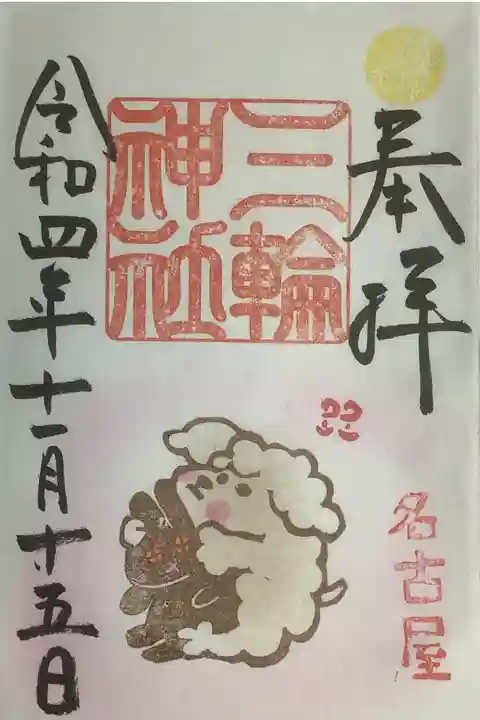 奉拝
名古屋
三輪
神社
令和四年十一月十五日